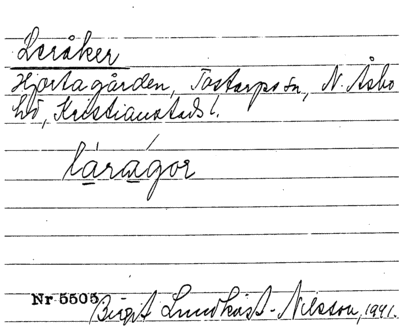 Leråker
Hjortagården, Tostarps sn, N. Åsbo
hd, Kristianstads l.
lárágor
Nr 5505
Birgit Lundkvist-Nilsson, 1941.